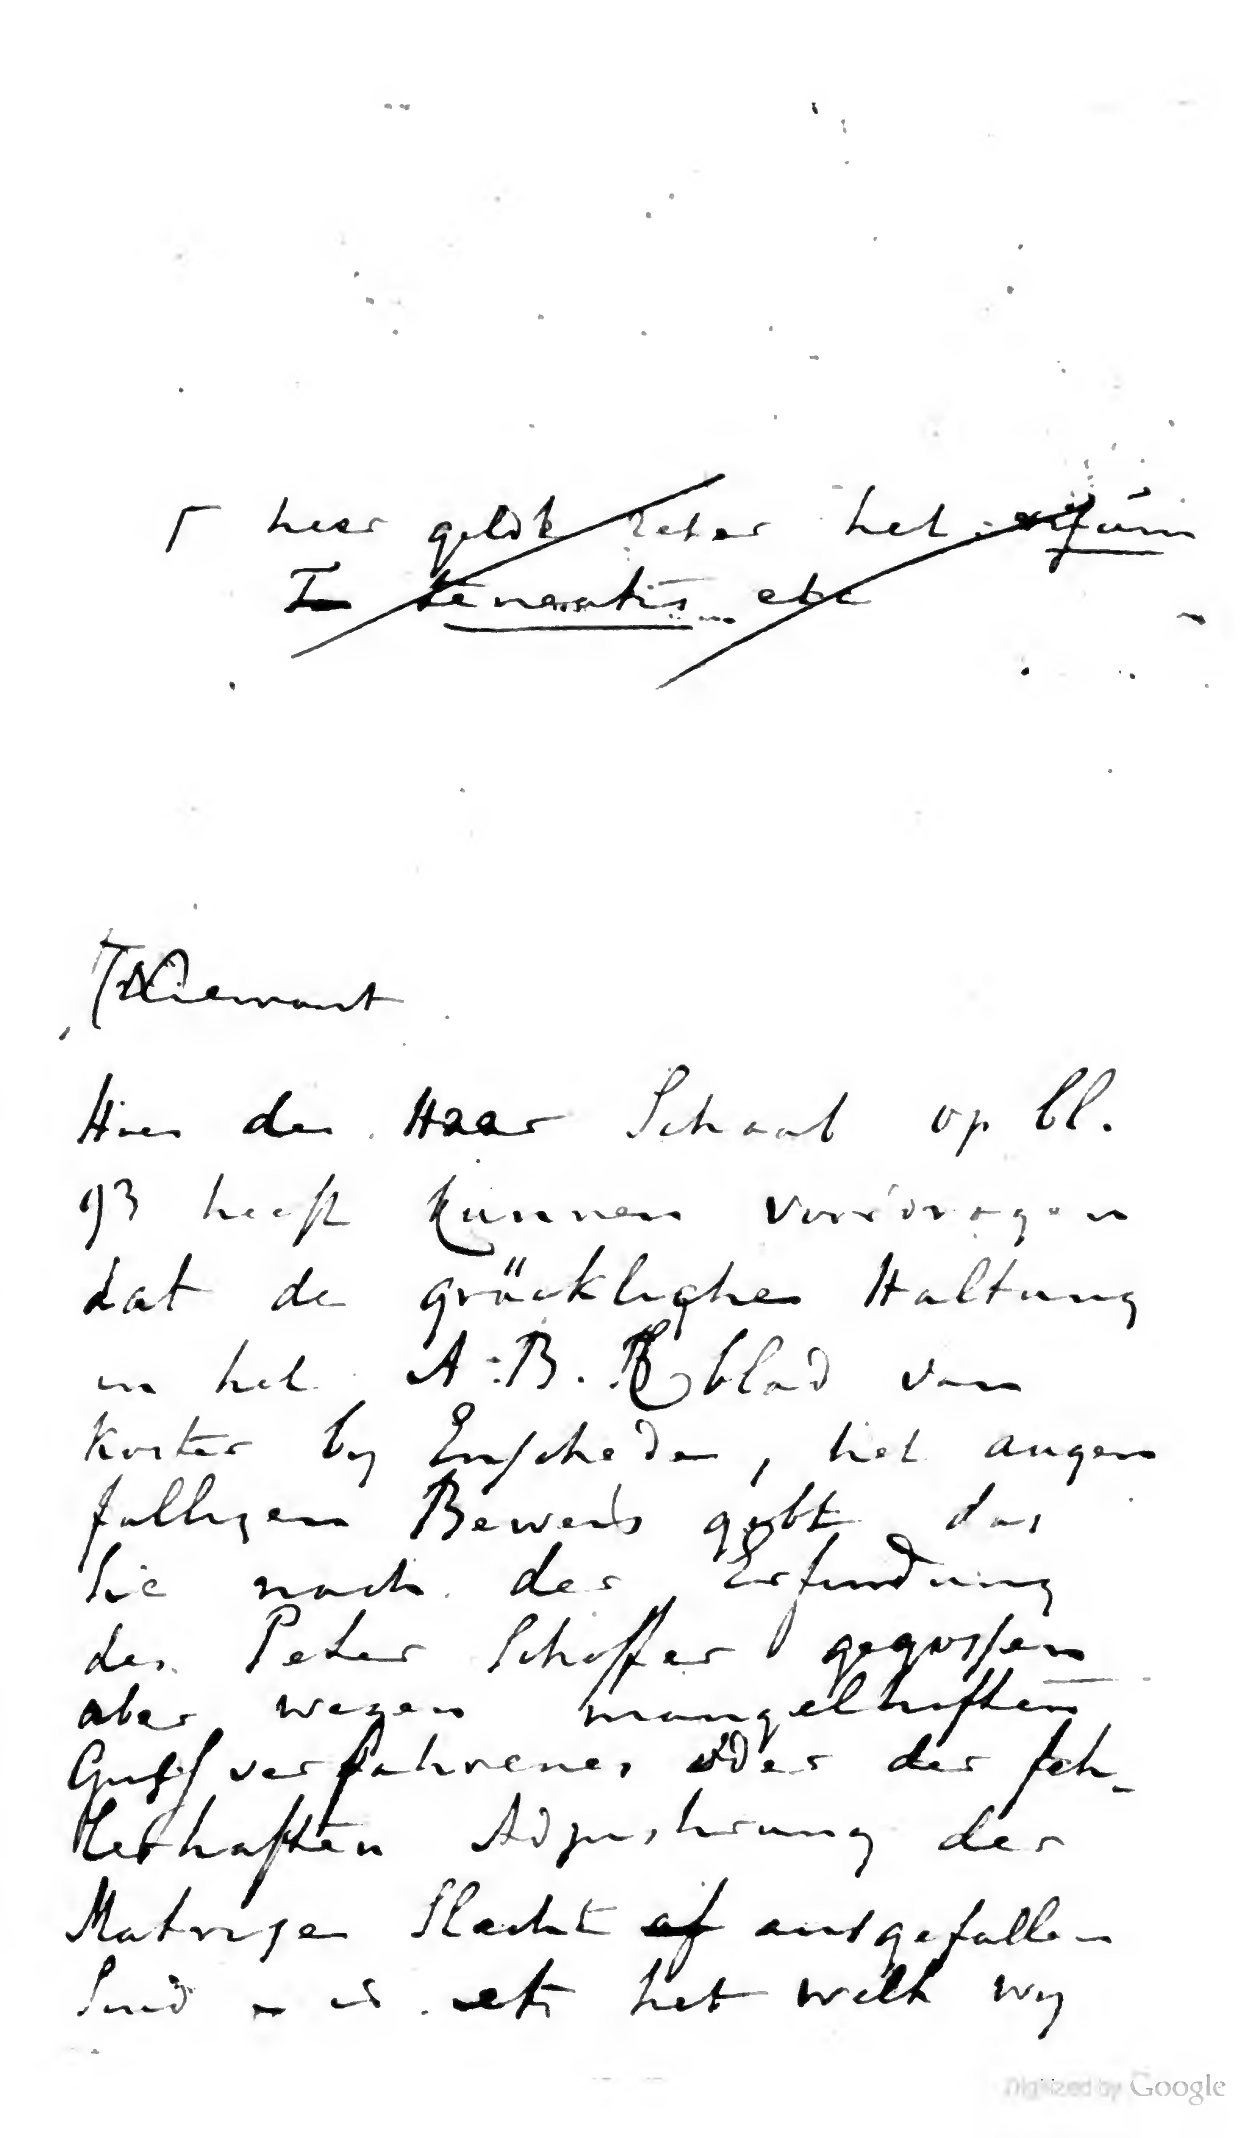 ┌ heer geldt zeker het
In etc
Niemant
Hoe der Haar Schaab op bl.
93 heeft kunnen voordragen
dat de gräckliche Haltung
in het A.B.C blad van
Koster by Enschede, het augen
falligen Beweis gibt das
Sie nach der Erfindung
des Peter Schoffer gegossen
aber wegen mangelhaften
Guss verfahrenes oder der feh-
lerhaften Adjustirung der
Matrizen Slecht af ausgefallen
Sind is het welk wy
Digitized by Google